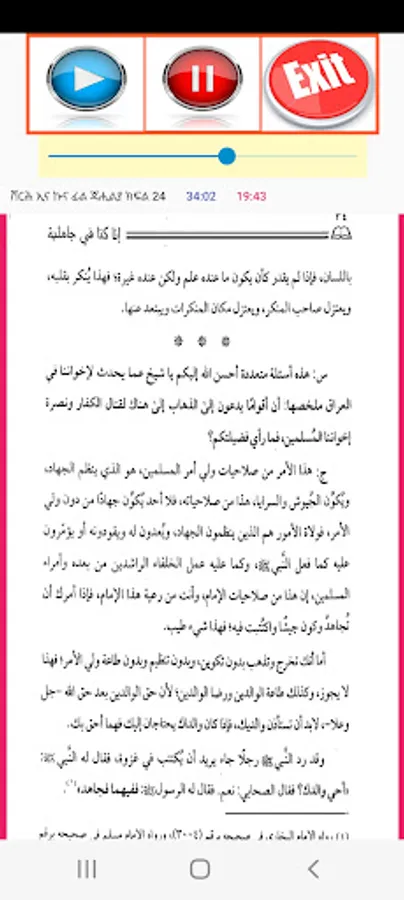 Exit
ሸርሕ ኢና ኩና ፊል ጃሂሊያ ክፍል 24 34:02 19:43
٢٤
إنا كنا في جاهلية
باللسان، فإذا لم يقدر كأن يكون ما عنده علم ولكن عنده غيرة؛ فهذا يُنكر بقلبه،
ويعتزل صاحب المنكر، ويعتزل مكان المنكرات ويبتعد عنها.
* * *
س: هذه أسئلة متعددة أحسن الله إليكم يا شيخ عما يحدث لإخواننا في
العراق ملخصها: أن أقوامًا يدعون إلىٰ الذهاب إلىٰ هناك لقتال الكفار ونصرة
إخواننا المُسلمين، فما رأي فضيلتكم؟
ج: هذا الأمر من صلاحيات ولي أمر المسلمين، هو الذي ينظم الجهاد،
ويُكوِّن الجُيوش والسرايا، هذا من صلاحياته، فلا أحد يُكوِّن جهادًا من دون ولي
الأمر، فولاة الأمور هم الذين ينظمون الجهاد، ويُعدون له ويقودونه أو يؤمِّرون
عليه كما فعل النَّبي ﷺ، وكما عليه عمل الخلفاء الراشدين من بعده وأمراء
المسلمين، إن هذا من صلاحيات الإمام، وأنت من رعية هذا الإمام، فإذا أمرك أن
تُجاهدَ وكون جيشًا واكتُتبت فيه؛ فهذا شيء طيب.
أما أنك تخرج وتذهب بدون تكوين، وبدون تنظيم وبدون طاعة ولي الأمر؛ فهذا
لا يجوز، وكذلك طاعة الوالدين ورضا الوالدين؛ لأن حق الوالدين بعد حق الله -جل
وعلا-، لابد أن تستأذن والديك، فإذا كان والداك يحتاجان إليك فهما أحق بك.
وقد رد النَّبي ﷺ رجلًا جاء يريد أن يُكتتب في غزوة، فقال له النَّبي ﷺ:
«أحي والداك؟ فقال الصحابي: نعم. فقال له الرسول ﷺ: ففيهما فجاهد»(١).
(١) رواه الإمام البخاري في صحيحه برقم (٣٠٠٤)، ورواه الإمام مسلم في صحيحه برقم